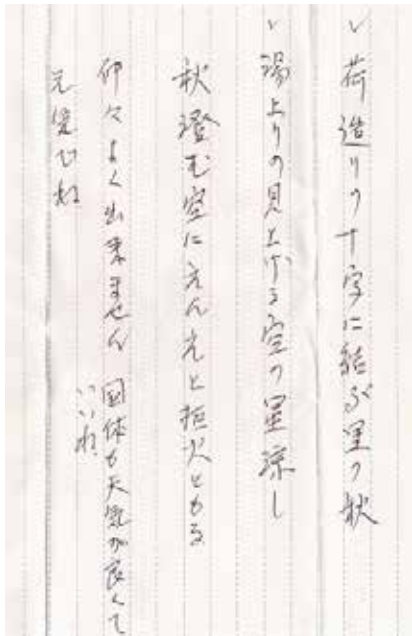 、荷造りの十字に結ぶ里の秋
、湯上りの見上げる空の星涼し
秋澄む空にえんえと炬火ともる
仲々よく出来ません 国体も天気が良くて
いいね
元気でね